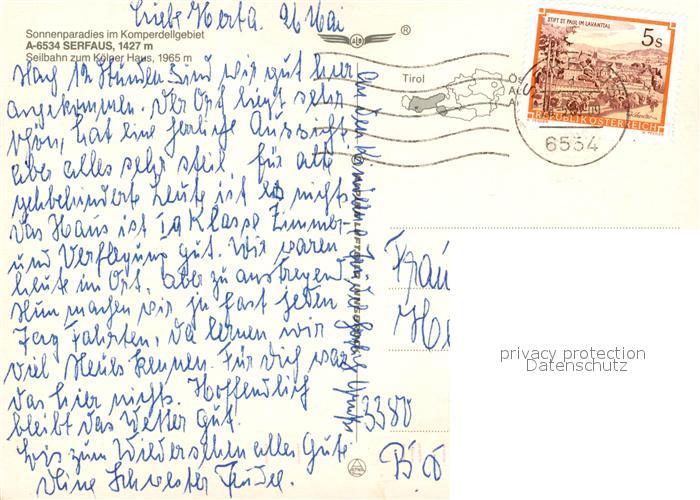 Liebe Herta. 26 Mai
Sonnenparadies im Komperdellgebiet
A-6534 SERFAUS, 1427 m
Seilbahn zum Kölner Haus, 1965 m
Nach 12 Stunden sind wir gut hier
angekommen. Der Ort liegt sehr
schön, hat eine herliche Aussicht
aber alles sehr steil, für alte
gehbehinderte Leute ist es nichts
Das Haus ist Ia Klasse Zimmer-
und Verflegung gut. Wir waren
heute im Ort, aber zu anstregend
Nun machen wir ja fast jeden
Tag Fahrten, da lernen wir
viel Neues kennen. Für Dich wär
das hier nichts. Hoffendlich
bleibt das Wetter gut.
Bis zum Wiedersehen alles Gute
Deine Schwester Trudel.
An den
®
Tirol
STIFT ST. PAUL IM LAVANTTAL
5 S
REPUBLIK ÖSTERREICH
6534
Frau
He
3380
privacy protection
Datenschutz